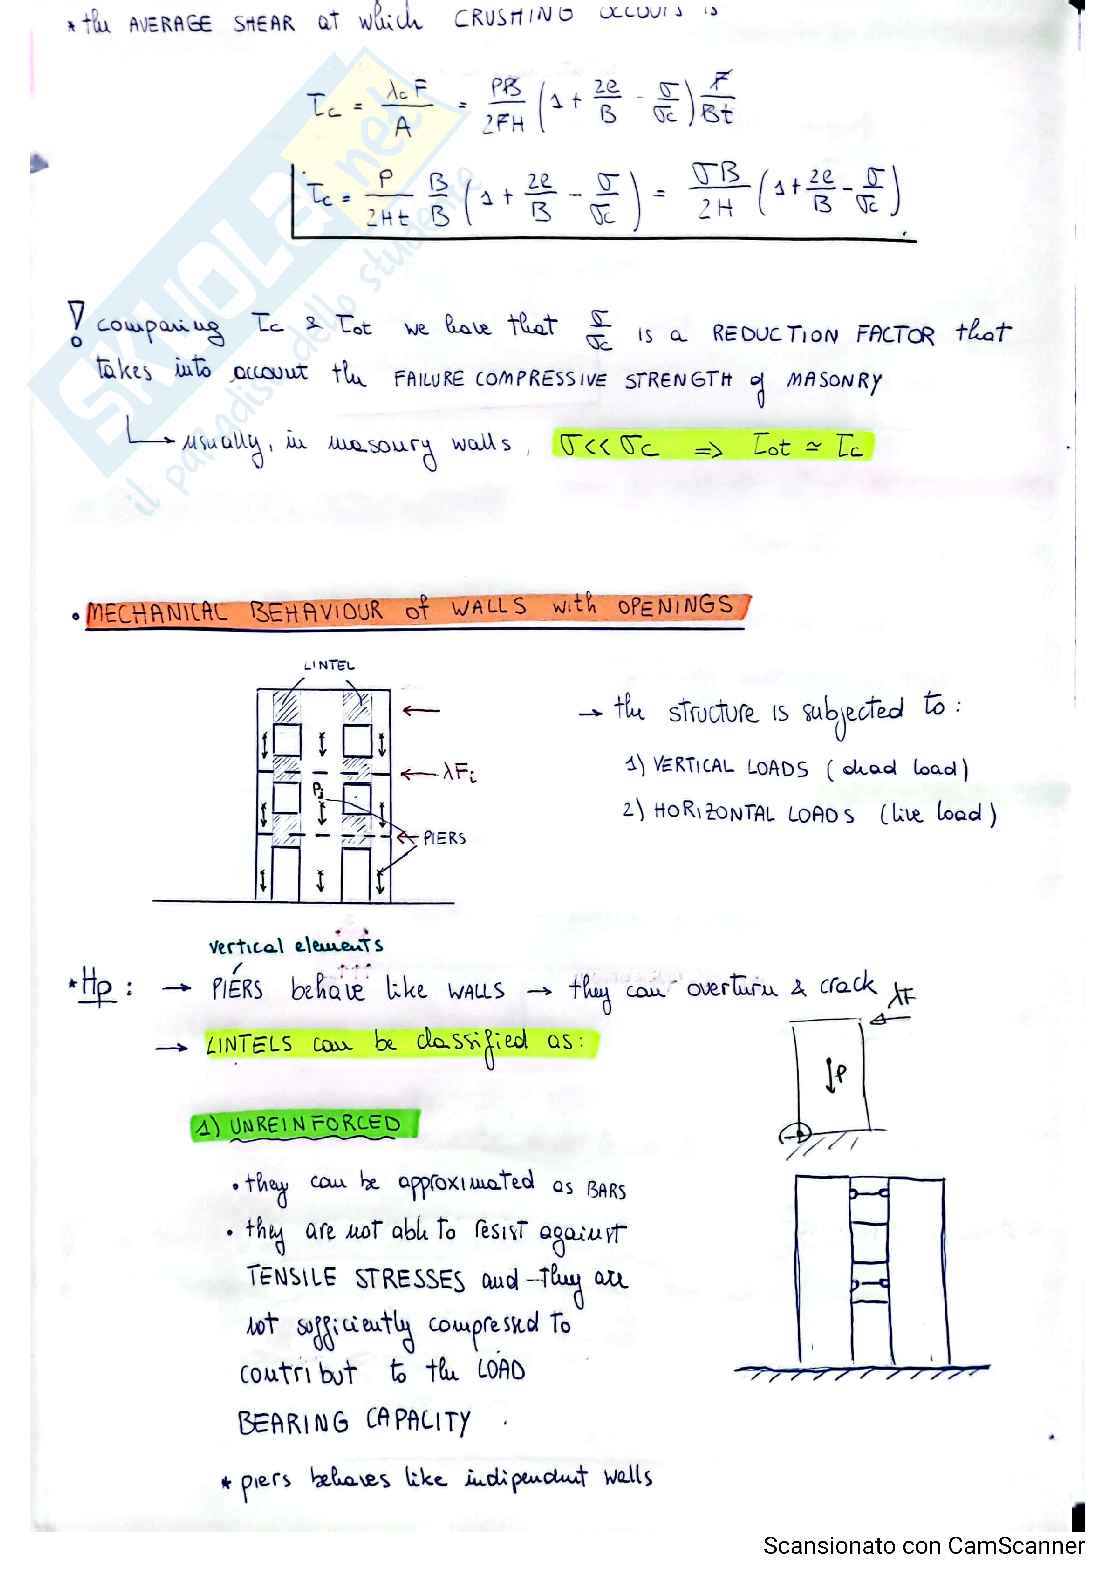 * the AVERAGE SHEAR at which CRUSHING OCCURS is
τc = λcF / A = PB / 2FH (1 + 2e/B - σ/σc) F/Bt
τc = P/2Ht B/B (1 + 2e/B - σ/σc) = σB/2H (1 + 2e/B - σ/σc)
! comparing τc & τot we have that σ/σc is a REDUCTION FACTOR that
takes into account the FAILURE COMPRESSIVE STRENGTH of MASONRY
↳ usually, in masonry walls, σ << σc ⇒ τot ≃ τc
• MECHANICAL BEHAVIOUR of WALLS with OPENINGS
LINTEL
→ the structure is subjected to:
1) VERTICAL LOADS (dead load)
λFi
Pj
2) HORIZONTAL LOADS (live load)
PIERS
vertical elements
* Hp: → PIERS behave like WALLS → they can overturn & crack
λF
→ LINTELS can be classified as:
P
1) UNREINFORCED
• they can be approximated as BARS
• they are not able to resist against
TENSILE STRESSES and they are
not sufficiently compressed to
contribut to the LOAD
BEARING CAPACITY.
* piers behaves like indipendent walls
SKUOLA.net
il paradiso dello studente
Scansionato con CamScanner